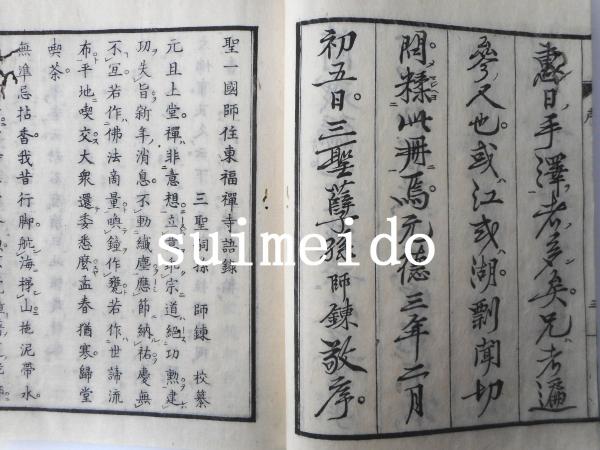 惠日手澤者多矣兄考遍
參尺也或江或湖剽聞切
問輮此冊焉元德三年二月
初五日三聖孽孫師錬敬序
聖一國師住東福禪寺語錄
三聖嗣孫 師錬 校纂
元旦上堂禪非意想立乖宗道絕功勳建
功失旨新年消息不動纖塵應節納祐慶無
不宜若作佛法商量喚鐘作甕若作世諦流
布平地喫交大衆還委悉麼孟春猶寒歸堂
喫茶
無準忌拈香我昔行脚航海梯山拖泥帶水
suimeido